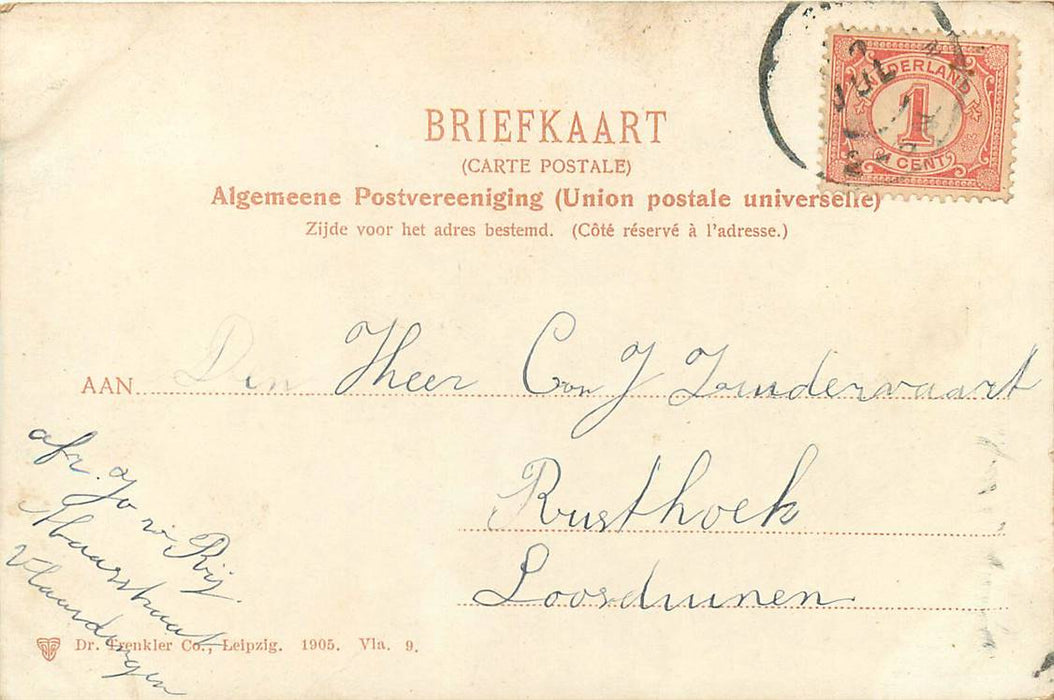 NEDERLAND
1
CENT
JUL
BRIEFKAART
(CARTE POSTALE)
Algemeene Postvereeniging (Union postale universelle)
Zijde voor het adres bestemd. (Côté réservé à l'adresse.)
AAN Den Heer C J Zundervaart
Rusthoek
Loosduinen
afz. Jo v Rij.
Maasstraat
Vlaardingen
Dr. Trenkler Co., Leipzig. 1905. Vla. 9.